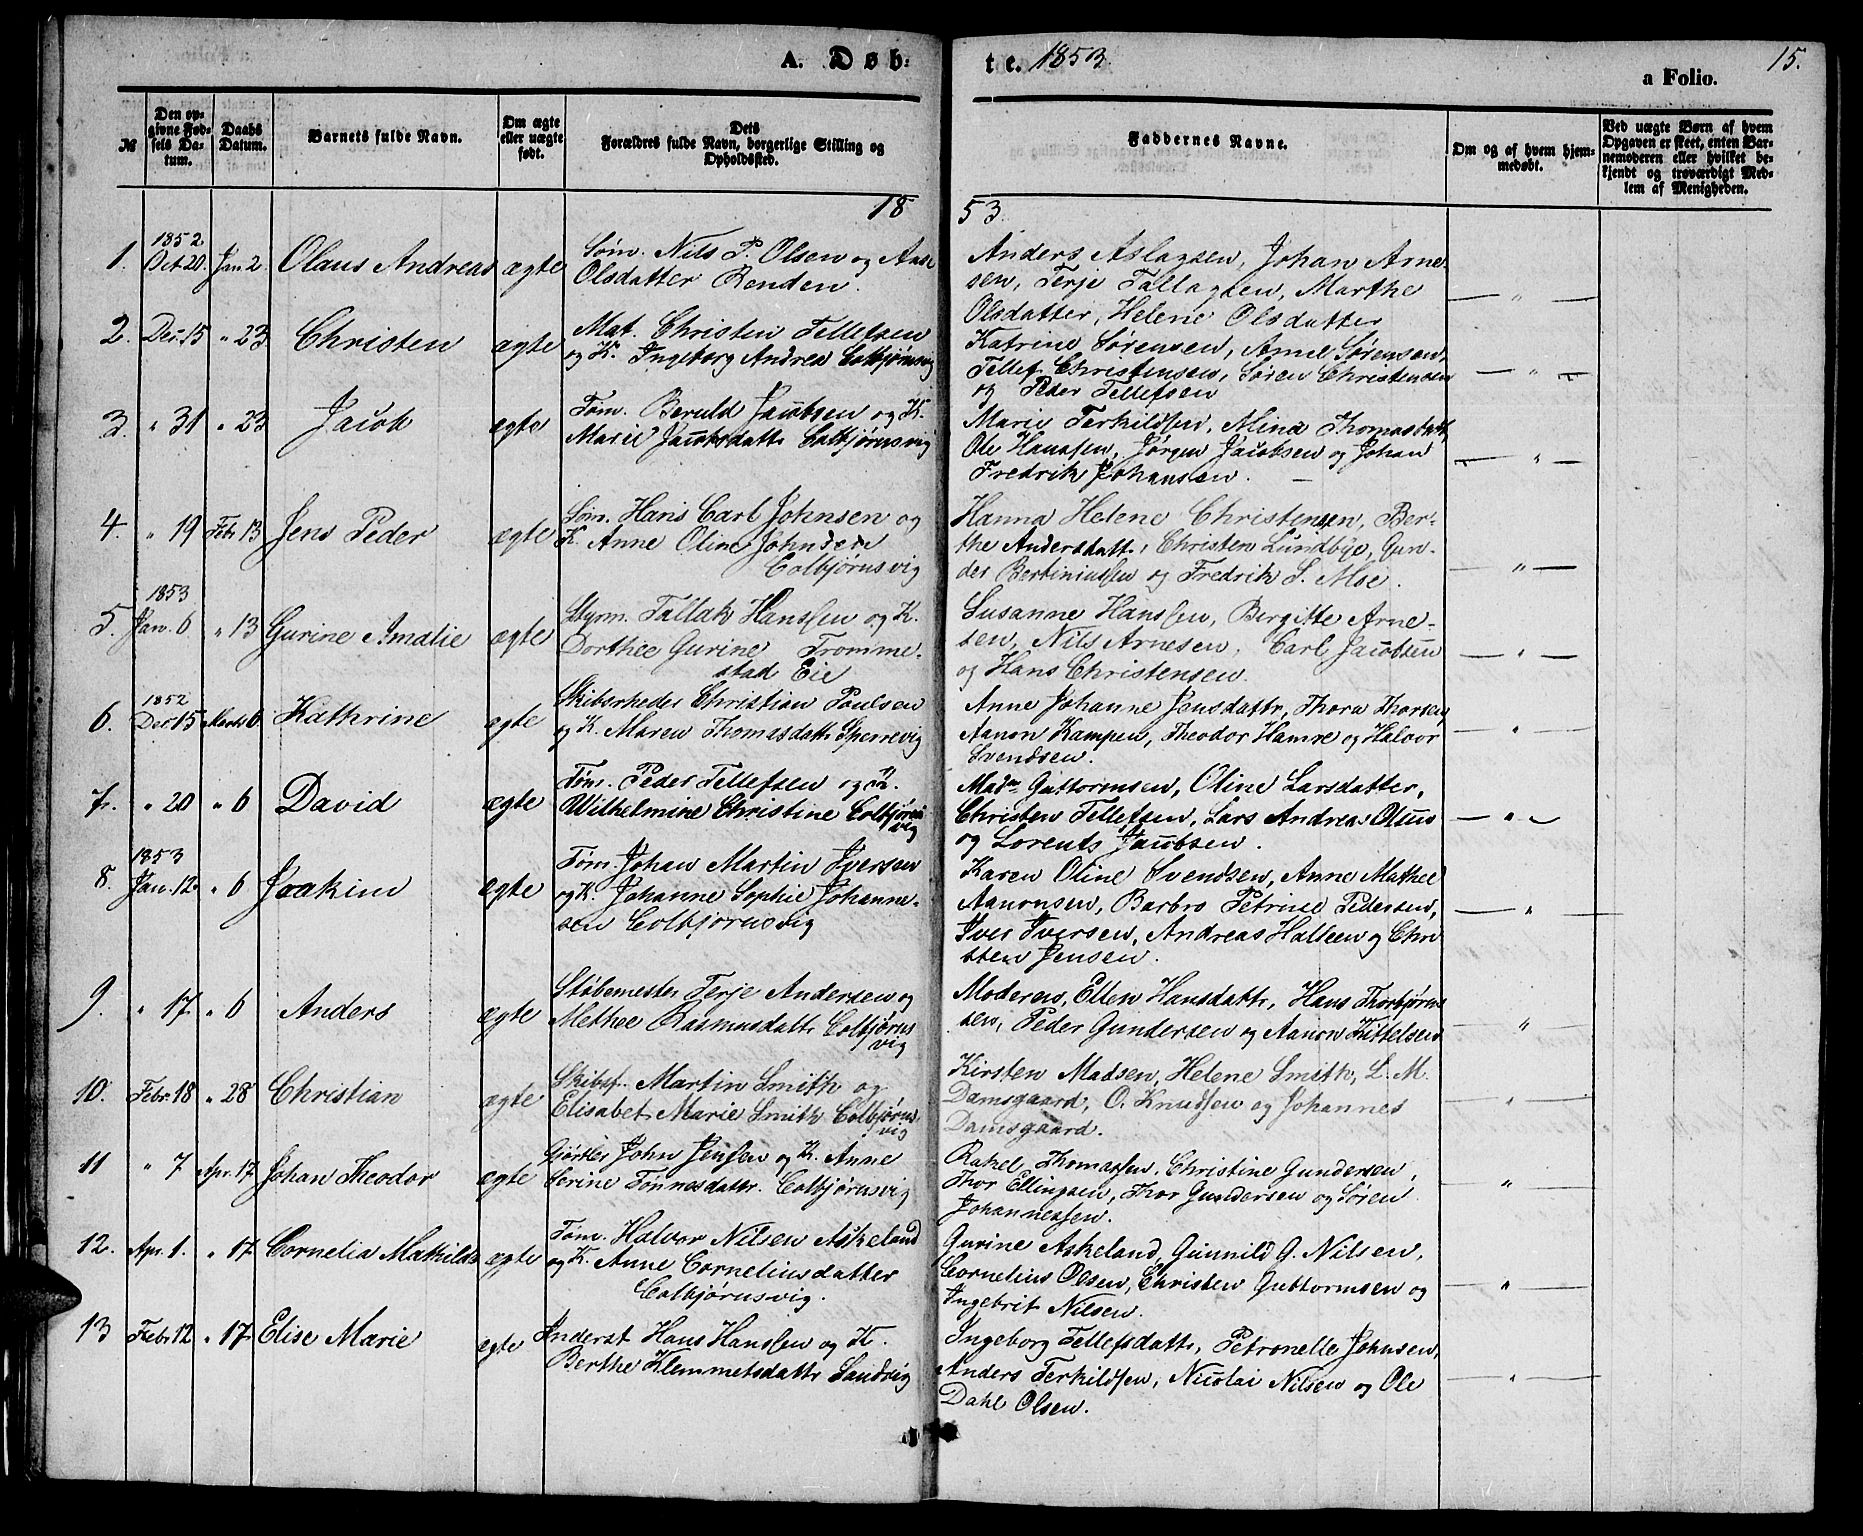 A. Døb-
te. 1853.
a Folio.
15.
№
Den op-
givne Fød-
sels Da-
tum.
Daabs
Datum.
Barnets fulde Navn.
Om ægte
eller uægte
født.
Dets
Forældres fulde Navn, borgerlige Stilling og
Opholdssted.
Faddernes Navne.
Om og af hvem hjem-
medøbt.
Ved uægte Børn af hvem
Opgaven er skeet, enten Bar-
nemoderen eller hvilket be-
kjendt og troværdigt Med-
lem af Menigheden.
18
53.
1. 1852 Oct 20. Jan 2. Olaus Andreas ægte
Søm. Nils P. Olsen og Aase
Olsdatter Renden.
Anders Aslagsen, Johan Arne-
sen, Terje Tallagsen, Marthe
Olsdatter, Helene Olsdatter
— " —
2. Dec. 15 " 23 Christen ægte
Mat. Christen Tellefsen
og K. Ingeborg Andrea Colbjørnsvig
Katrine Sørensen, Anne Sørensen,
Tellef Christensen, Søren Christensen
og Peder Tellefsen
— " —
3. " 31 " 23 Jacob ægte
Tøm. Beruld Jacobsen og K.
Marie Jacobsdattr Colbjørnsvig
Marie Terkildsen, Mina Thomasdatt.
Ole Hanssen, Jørgen Jacobsen og Johan
Fredrik Johansen. —
— " —
4. " 19 Feb 13 Jens Peder ægte
Søm. Hans Carl Johnsen og
K. Anne Oline Johnsen
Colbjørnsvig
Hanna Helene Christensen, Ber-
the Andersdatt., Christen Lundbye, Gun-
der Bertiniussen og Fredrik S. Moe.
— " —
5. 1853 Jan. 6 " 13 Gurine Amalie ægte
Styrm. Tallak Hanssen og K.
Dorthee Gurine Tromme-
stad Eie
Susanne Hanssen, Bergitte Arne-
sen, Nils Arnesen, Carl Jacobsen
og Hans Christensen.
— " —
6. 1852 Dec 15 Marts 6 Kathrine ægte
Skibsrheder Christian Poulsen
og K. Maren Thomasdattr Sperrevig
Anne Johanne Jensdattr, Thora Thorsen,
Aanon Kampen, Theodor Hamre og Halvor
Svendsen.
— " —
7. " 20 " 6 David ægte
Tøm. Peder Tellefsen og K.
Wilhelmine Christine Colbjørns
vig
Madm Guttormsen, Oline Larsdatter,
Christen Tellefsen, Lars Andreas Olsen
og Lorents Jacobsen.
— " —
8. 1853 Jan. 12 " 6 Joakim ægte
Tøm. Johan Martin Iversen
og K. Johanne Sophie Johanne-
sen Colbjørnsvig
Karen Oline Svendsen, Anne Mathee
Aanonsen, Barbro Petrine Pedersen,
Iver Iversen, Andreas Halleen og Chri
sten Jensen.
— " —
9. " 17 " 6 Anders ægte
Støbemester Terje Andersen og
Methee Rasmusdattr Colbjørns
vig
Moderen, Ellen Hansdattr, Hans Thorbjørn-
sen, Peder Gundersen og Aanon Kittelsen
— " —
10. Febr 18 " 28 Christian ægte
Skibsf. Martin Smith og
Elisabet Marie Smith Colbjørns
vig
Kirsten Madsen, Helene Smith, L. M.
Damsgaard, O. Knudsen og Johannes
Damsgaard.
— " —
11 " 7 Apr. 17 Johan Theodor ægte
Gjørtler John Jensen og K. Anne
Serine Tønnesdattr. Colbjørnsvig
Rakel Thomassen, Christine Gundersen,
Thor Ellingsen, Thor Gundersen og Søren
Johannessen.
— " —
12. Apr. 1. " 17 Cornelia Mathilde ægte
Tøm. Halvor Nilsen Askeland
og K. Anne Corneliusdatter
Colbjørnsvig.
Gurine Askeland, Gunnild G. Nilsen,
Cornelius Olsen, Christen Guttormsen og
Ingebrit Nilsen.
— " —
13 Febr 12 " 17 Elise Marie ægte
Inderst Hans Hanssen og K.
Berthe Klemmetsdattr Sandvig
Ingeborg Tellefsdattr, Petronelle Johnsen,
Anders Terkildsen, Nicolai Nilsen og Ole
Dahl Olsen.
— " —